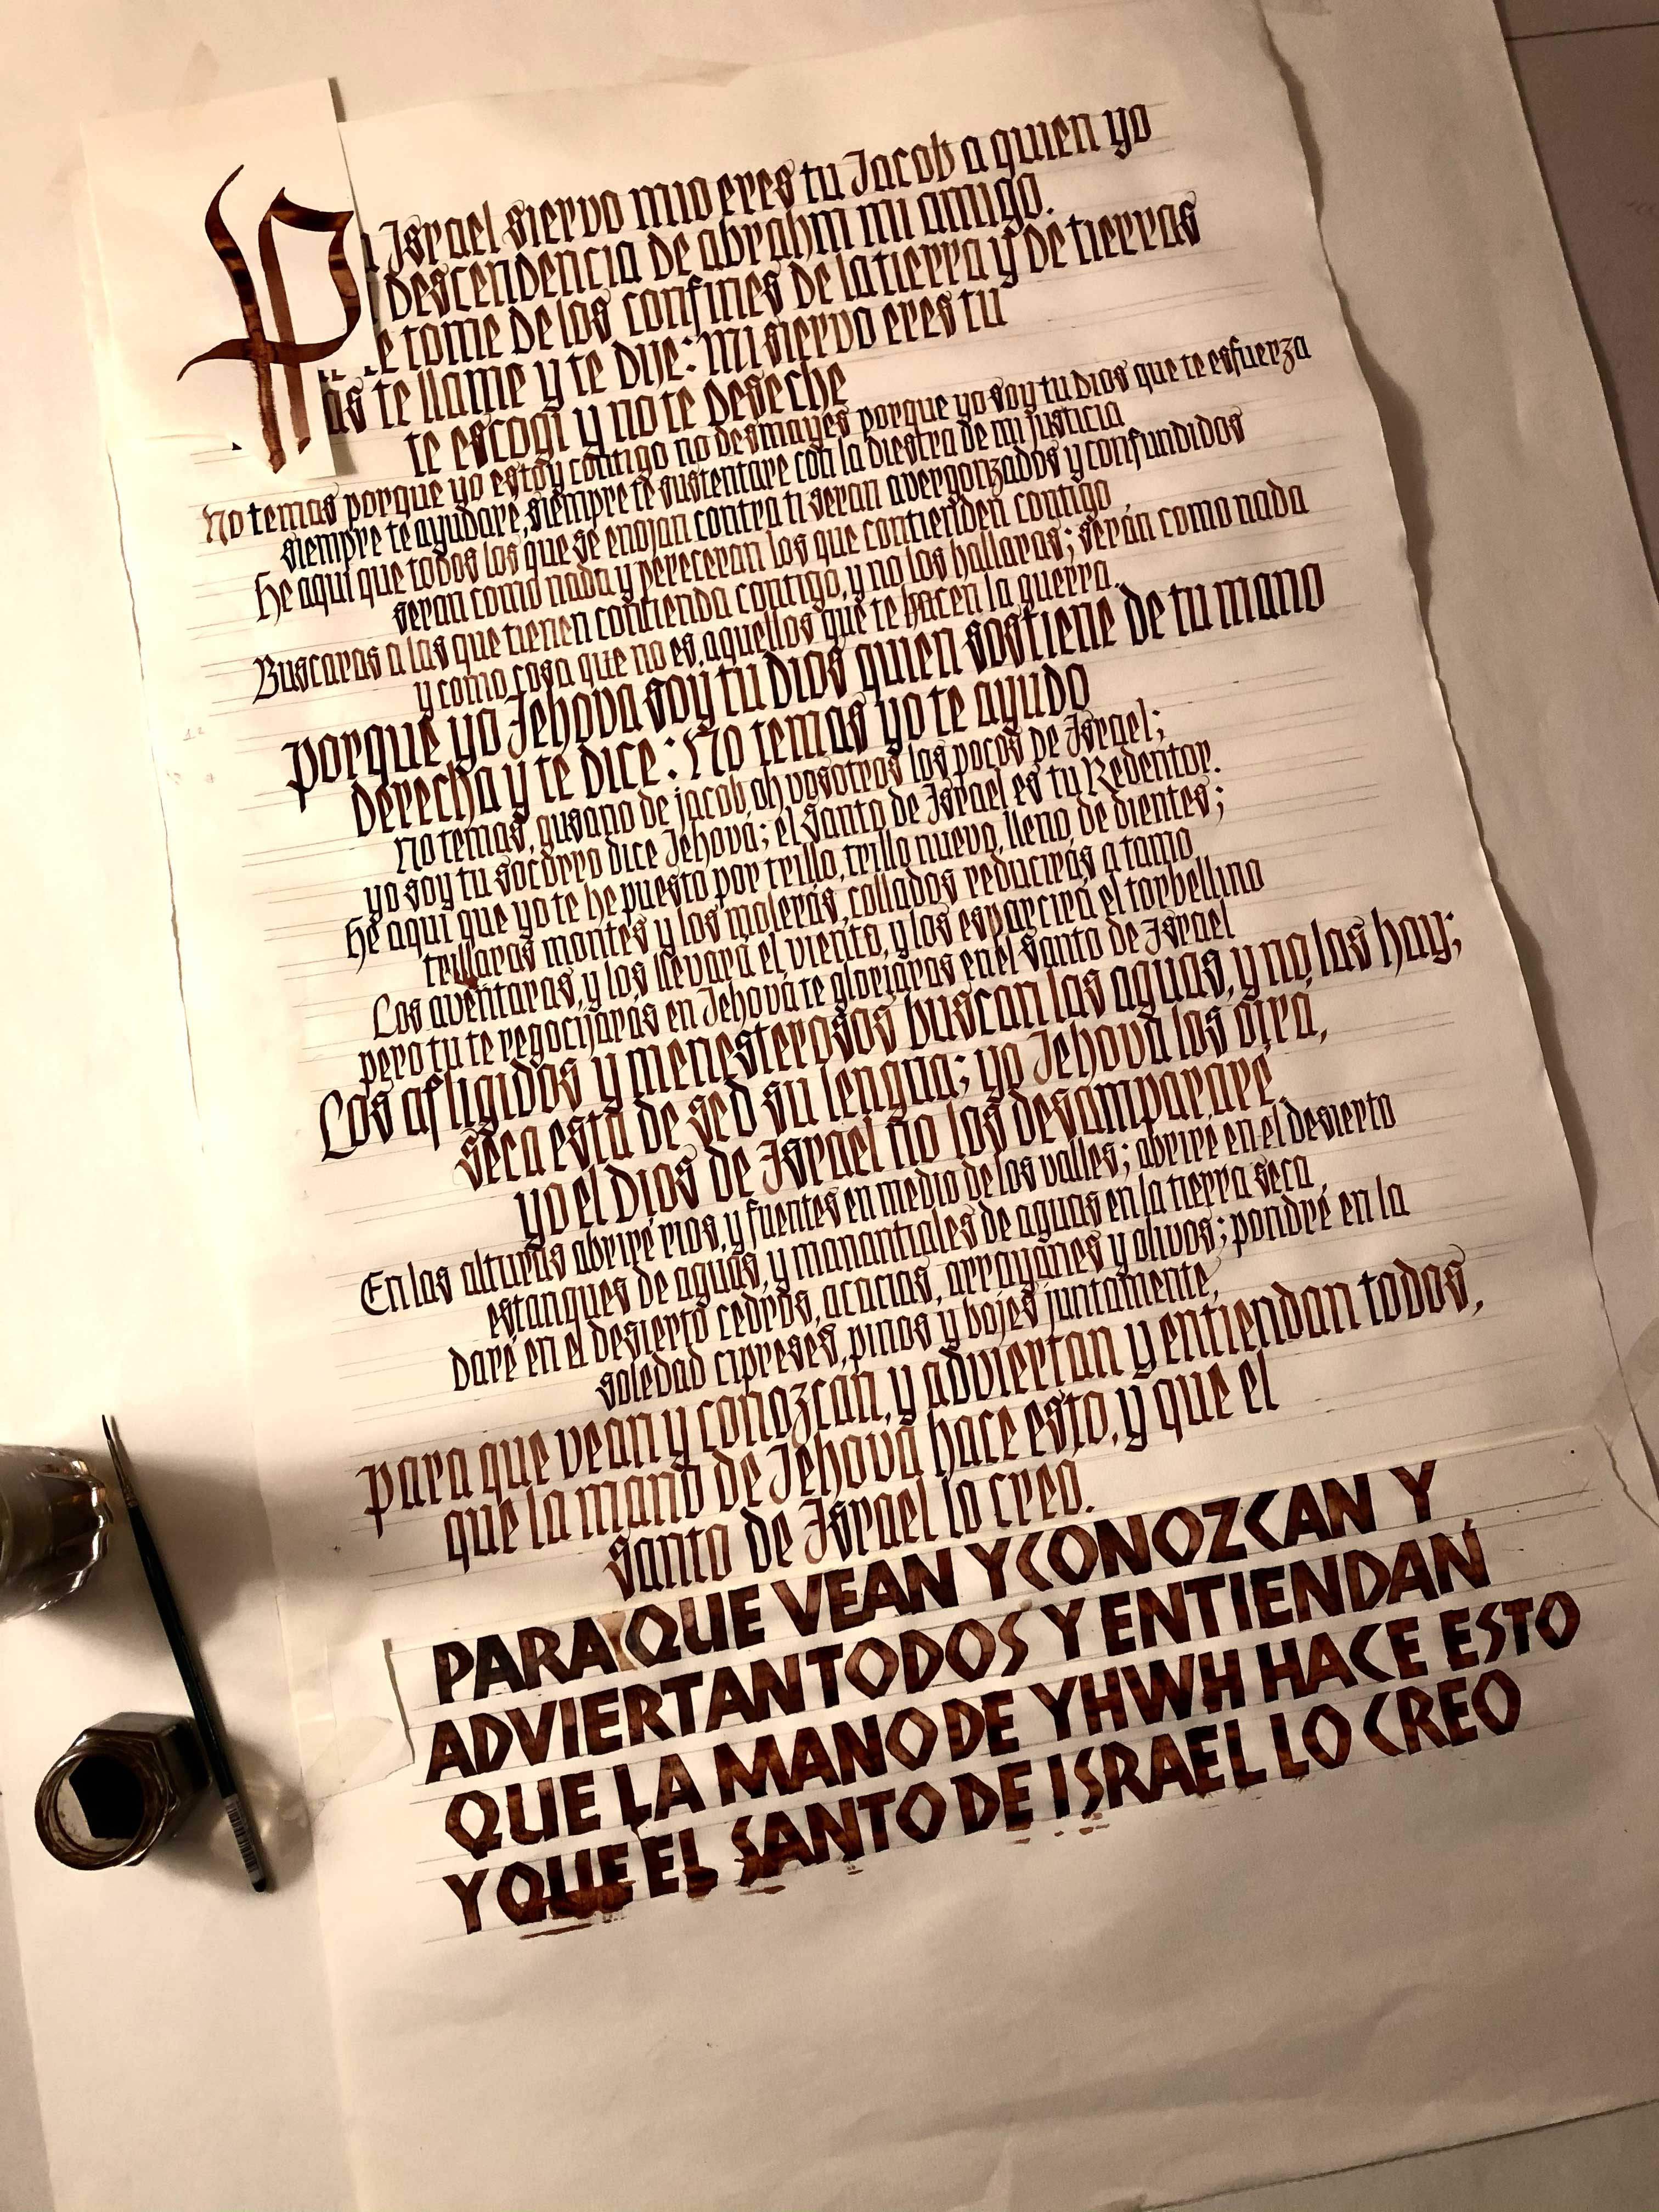 P
Israel siervo mio eres tu Jacob a quien yo
descendencia de abrahm mi amigo.
e tome de los confines de la tierra y de tierras
as te llame y te dije: mi siervo eres tu
te escogi y no te deseche
No temas porque yo estoy contigo no desmayes porque yo soy tu Dios que te esfuerza
siempre te ayudare, siempre te sustentare con la diestra de mi justicia
He aqui que todos los que se enojan contra ti seran avergonzados y confundidos
seran como nada y pereceran los que contienden contigo
Buscaras a los que tienen contienda contigo, y no los hallaras; serán como nada
y como cosa que no es, aquellos que te hacen la guerra.
porque yo Jehova soy tu Dios quien sostiene de tu mano
derecha y te dice: No temas yo te ayudo
No temas, gusano de jacob oh vosotros los pocos de Israel;
yo soy tu socorro dice Jehová; el Santo de Israel es tu Redentor.
He aqui que yo te he puesto por trillo, trillo nuevo, lleno de dientes;
trillaras montes y los molerás, collados reducirás a tamo
Los aventaras, y los llevará el viento, y los esparcirá el torbellino
pero tu te regocijarás en Jehová te gloriaras en el Santo de Israel
Los afligidos y menesterosos buscan las aguas, y no las hay;
seca está de sed su lengua; yo Jehová los oiré,
yo el Dios de Israel no los desampararé.
En las alturas abriré rios, y fuentes en medio de los valles; abriré en el desierto
estanques de aguas, y manantiales de aguas en la tierra seca,
Daré en el desierto cedros, acacias, arrayanes y olivos; pondré en la
soledad cipreses, pinos y bojes juntamente,
para que vean y conozcan, y adviertan y entiendan todos,
que la mano de Jehová hace esto, y que el
Santo de Israel lo creo.
PARA QUE VEAN Y CONOZCAN Y
ADVIERTAN TODOS Y ENTIENDAN
QUE LA MANO DE YHWH HACE ESTO
Y QUE EL SANTO DE ISRAEL LO CREO